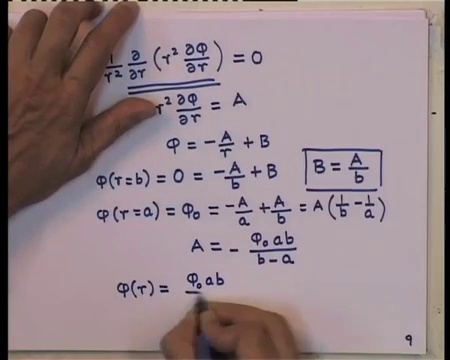 1/r² ∂/∂r (r² ∂φ/∂r) = 0
r² ∂φ/∂r = A
φ = -A/r + B
φ(r=b) = 0 = -A/b + B   B = A/b
φ(r=a) = φ₀ = -A/a + A/b = A(1/b - 1/a)
A = - φ₀ab/b-a
φ(r) = φ₀ab
9